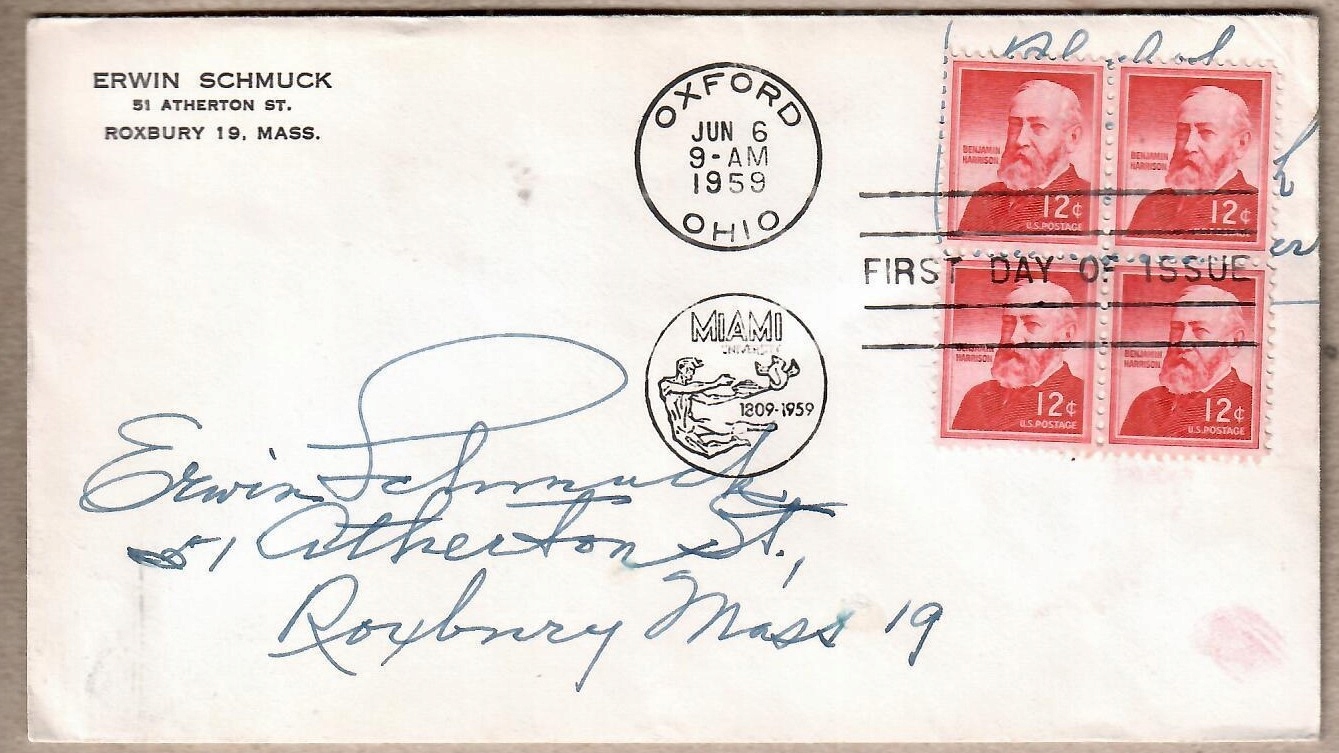 ERWIN SCHMUCK
51 ATHERTON ST.
ROXBURY 19, MASS.
OXFORD
JUN 6
9-AM
1959
OHIO
MIAMI
UNIVERSITY
1809-1959
BENJAMIN
HARRISON
12¢
U.S. POSTAGE
BENJAMIN
HARRISON
12¢
U.S. POSTAGE
FIRST DAY OF ISSUE
BENJAMIN
HARRISON
12¢
U.S. POSTAGE
BENJAMIN
HARRISON
12¢
U.S. POSTAGE
Erwin Schmuck
51 Atherton St.,
Roxbury Mass 19